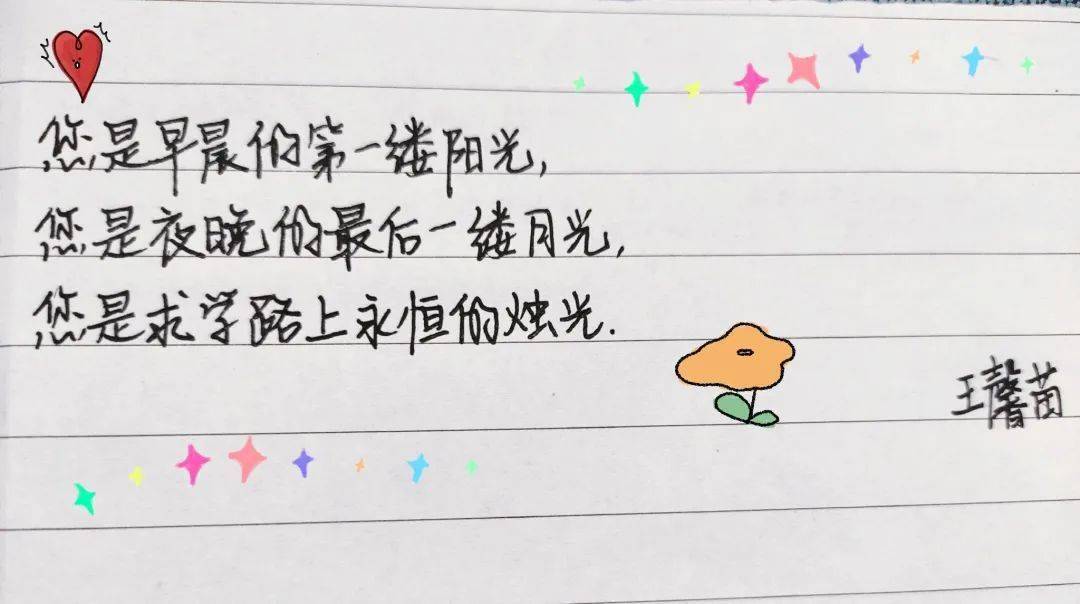 您是早晨的第一缕阳光,
您是夜晚的最后一缕月光,
您是求学路上永恒的烛光.
王馨苗